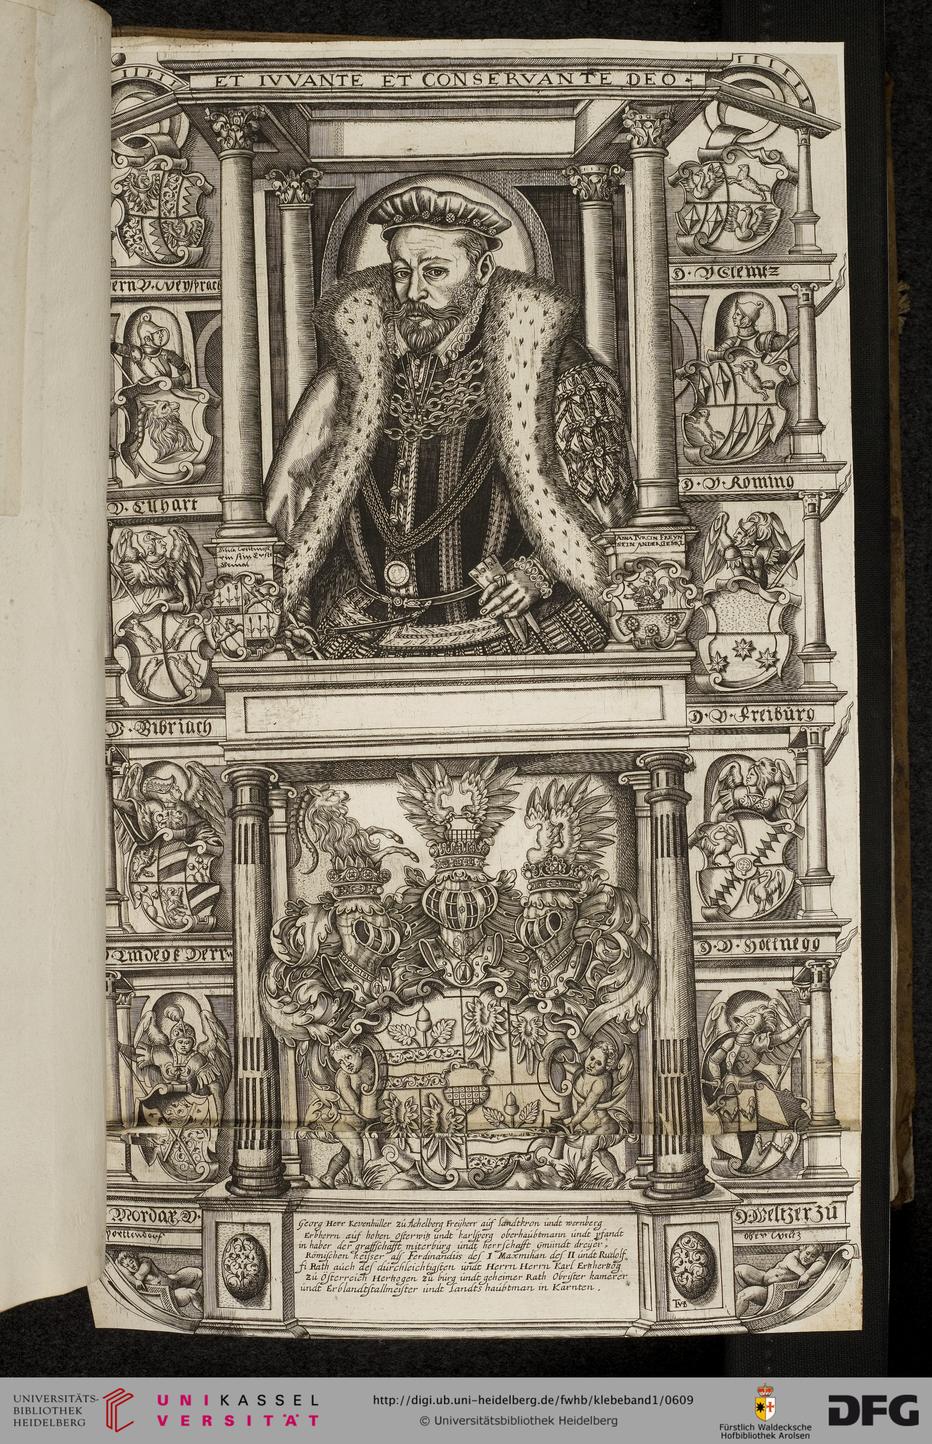 ET IVVANTE ET CONSERVANTE DEO
D. V Glemtz
D. V. Roming
V. Cuhart
ANNA TVRCIN FREYN
SEIN ANDER GEMAL
V. Bibriach
D. V. Freibürg
D. V. Hottnegg
Mordax V.
D. Weltzer zü
Georg Herr Kevenhuller zü Aichelberg Freiherr aüf landtkron ündt wernberg
Erbherrn aüf hohen Osterwitz ündt karlsperg oberhaübtmann ündt pfandt
in haber der graffschafft miterbürg ündt herrschafft Gmündt dreyer
Römischen keisser als Ferdinandüs des I Maximilian des II ündt Rüdolf.
fi Rath aüch des dürchleichtigsten ündt Herrn Herrn Karl Ertzhertzog
zü Osterreich Hertzogen zü bürg ündt geheimer Rath Obrister kamerer
ündt Erblandtstallmeister ündt Landtshaübtman in Kärnten.
UNIVERSITÄTS-
BIBLIOTHEK
HEIDELBERG
UNIKASSEL
VERSITÄT
http://digi.ub.uni-heidelberg.de/fwhb/klebeband1/0609
© Universitätsbibliothek Heidelberg
Fürstlich Waldecksche
Hofbibliothek Arolsen
DFG